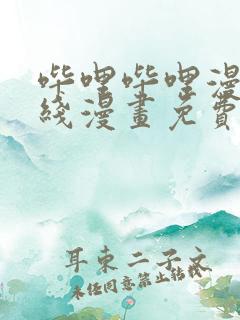 哔哩哔哩漫
线漫畫免費
耳東二子文
未经同意禁止转载